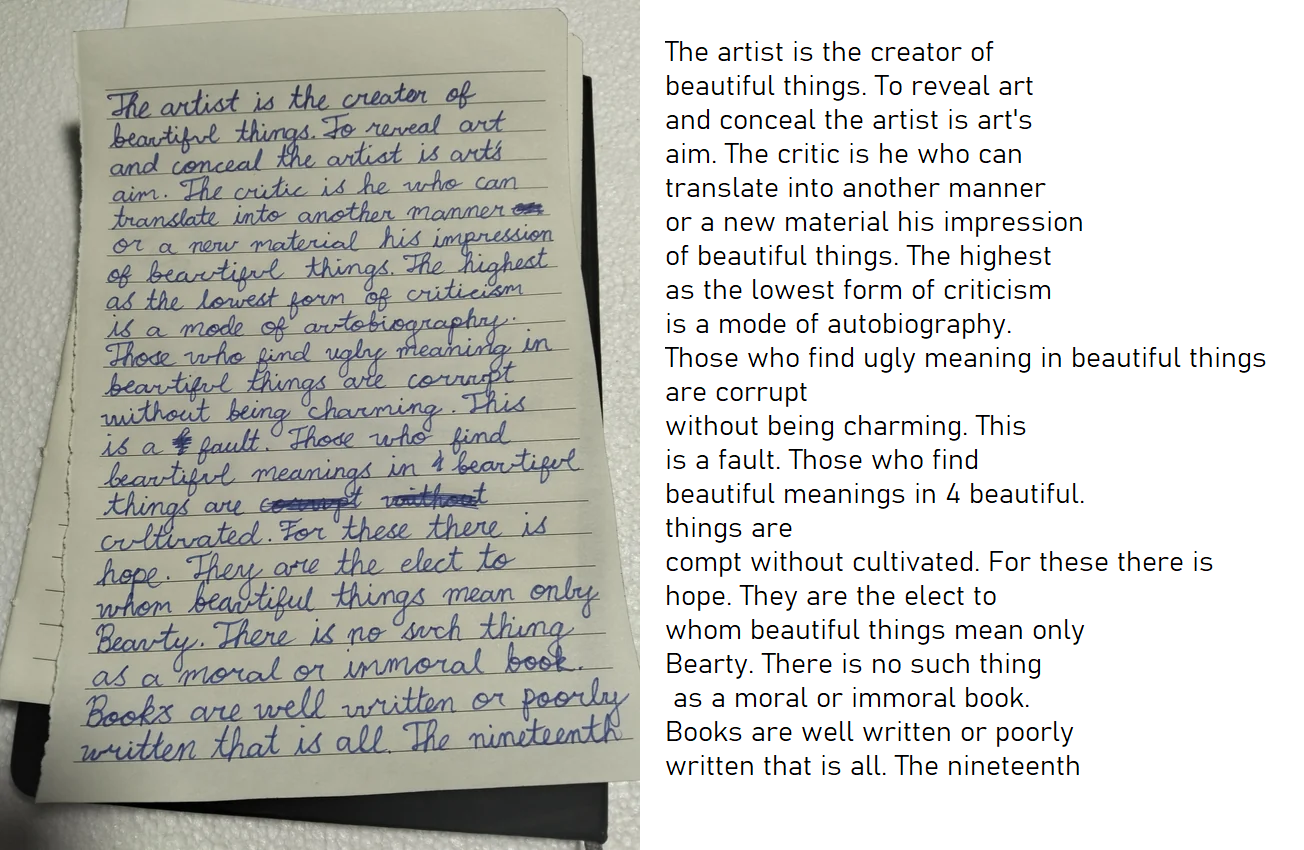 The artist is the creator of
beautiful things. To reveal art
and conceal the artist is art's
aim. The critic is he who can
translate into another manner
or a new material his impression
of beautiful things. The highest
as the lowest form of criticism
is a mode of autobiography.
Those who find ugly meaning in
beautiful things are corrupt
without being charming. This
is a fault. Those who find
beautiful meanings in beautiful
things are corrupt without
cultivated. For these there is
hope. They are the elect to
whom beautiful things mean only
Beauty. There is no such thing
as a moral or immoral book.
Books are well written or poorly
written that is all. The nineteenth
The artist is the creator of
beautiful things. To reveal art
and conceal the artist is art's
aim. The critic is he who can
translate into another manner
or a new material his impression
of beautiful things. The highest
as the lowest form of criticism
is a mode of autobiography.
Those who find ugly meaning in beautiful things
are corrupt
without being charming. This
is a fault. Those who find
beautiful meanings in 4 beautiful.
things are
compt without cultivated. For these there is
hope. They are the elect to
whom beautiful things mean only
Bearty. There is no such thing
as a moral or immoral book.
Books are well written or poorly
written that is all. The nineteenth